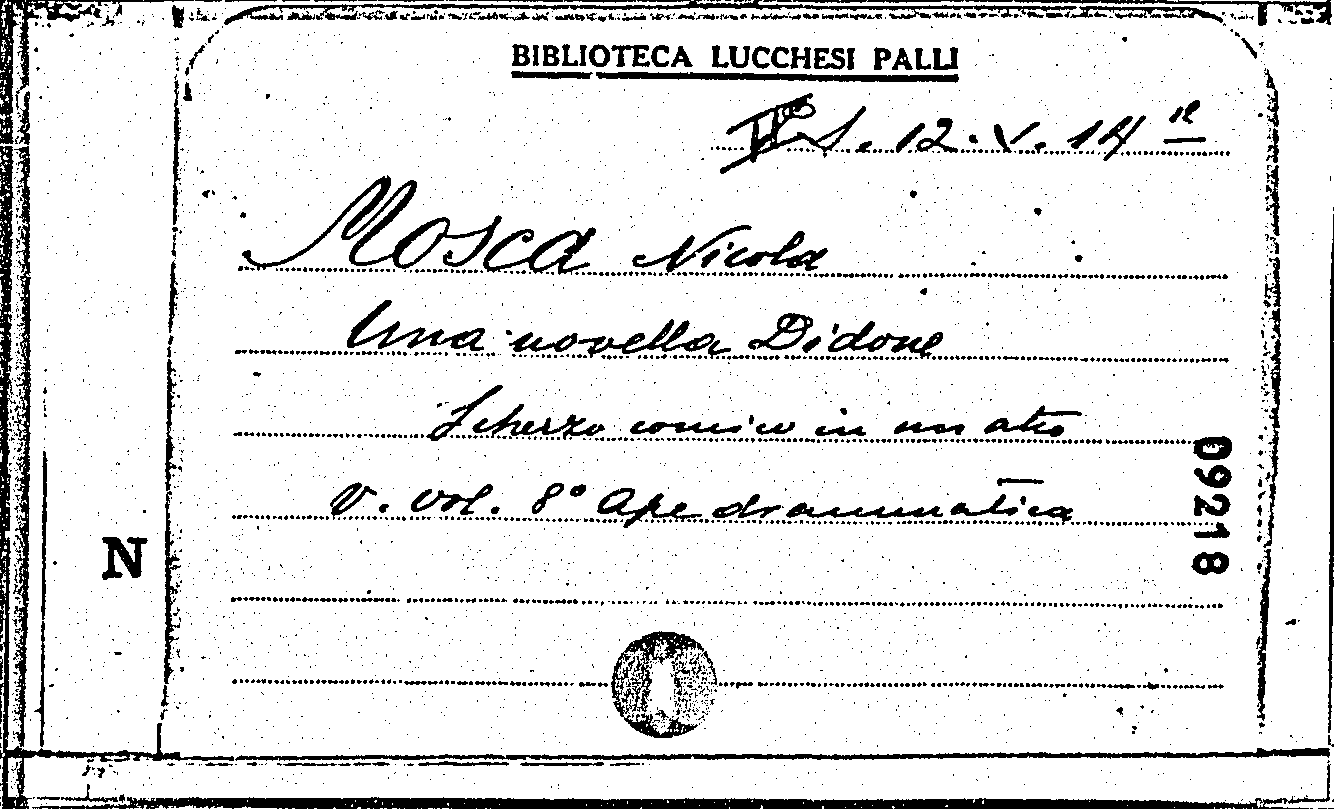 BIBLIOTECA LUCCHESI PALLI
S. 12. V. 14 12
Mosca Nicola
Una novella Didone
Scherzo comico in un atto
v. vol. 8° Ape drammatica
09218
N